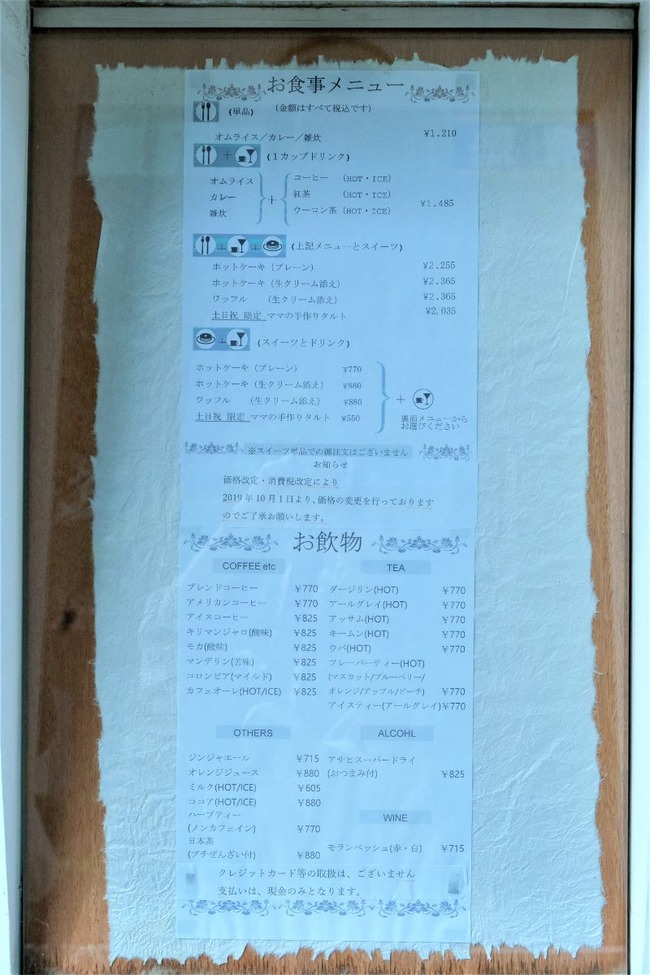 お食事メニュー
(単品) (金額はすべて税込です)
オムライス／カレー／雑炊 ¥1.210
+ (1カップドリンク)
オムライス
カレー
雑炊
+
コーヒー (HOT・ICE)
紅茶 (HOT・ICE)
ウーコン茶(HOT・ICE)
¥1.485
+ + (上記メニューとスイーツ)
ホットケーキ（プレーン） ¥2.255
ホットケーキ（生クリーム添え） ¥2.365
ワッフル （生クリーム添え） ¥2.365
土日祝 限定 ママの手作りタルト ¥2.035
+ (スイーツとドリンク)
ホットケーキ（プレーン） ¥770
ホットケーキ（生クリーム添え） ¥880
ワッフル （生クリーム添え） ¥880
土日祝 限定 ママの手作りタルト ¥550
+
裏面メニューから
お選びください
※スイーツ単品での御注文はございません
お知らせ
価格改定・消費税改定により
2019年10月1日より、価格の変更を行っております
のでご了承お願いします。
お飲物
COFFEE etc
ブレンドコーヒー ¥770
アメリカンコーヒー ¥770
アイスコーヒー ¥825
キリマンジャロ(酸味) ¥825
モカ(酸味) ¥825
マンデリン(苦味) ¥825
コロンビア(マイルド) ¥825
カフェオーレ(HOT/ICE) ¥825
TEA
ダージリン(HOT) ¥770
アールグレイ(HOT) ¥770
アッサム(HOT) ¥770
キームン(HOT) ¥770
ウバ(HOT) ¥770
フレーバーティー(HOT)
(マスカット/ブルーベリー/
オレンジ/アップル/ピーチ) ¥770
アイスティー(アールグレイ)¥770
OTHERS
ジンジャエール ¥715
オレンジジュース ¥880
ミルク(HOT/ICE) ¥605
ココア(HOT/ICE) ¥880
ハーブティー
(ノンカフェイン) ¥770
日本茶
(プチぜんざい付) ¥880
ALCOHL
アサヒスーパードライ
(おつまみ付) ¥825
WINE
モランベッシュ(赤・白) ¥715
クレジットカード等の取扱は、ございません
支払いは、現金のみとなります。